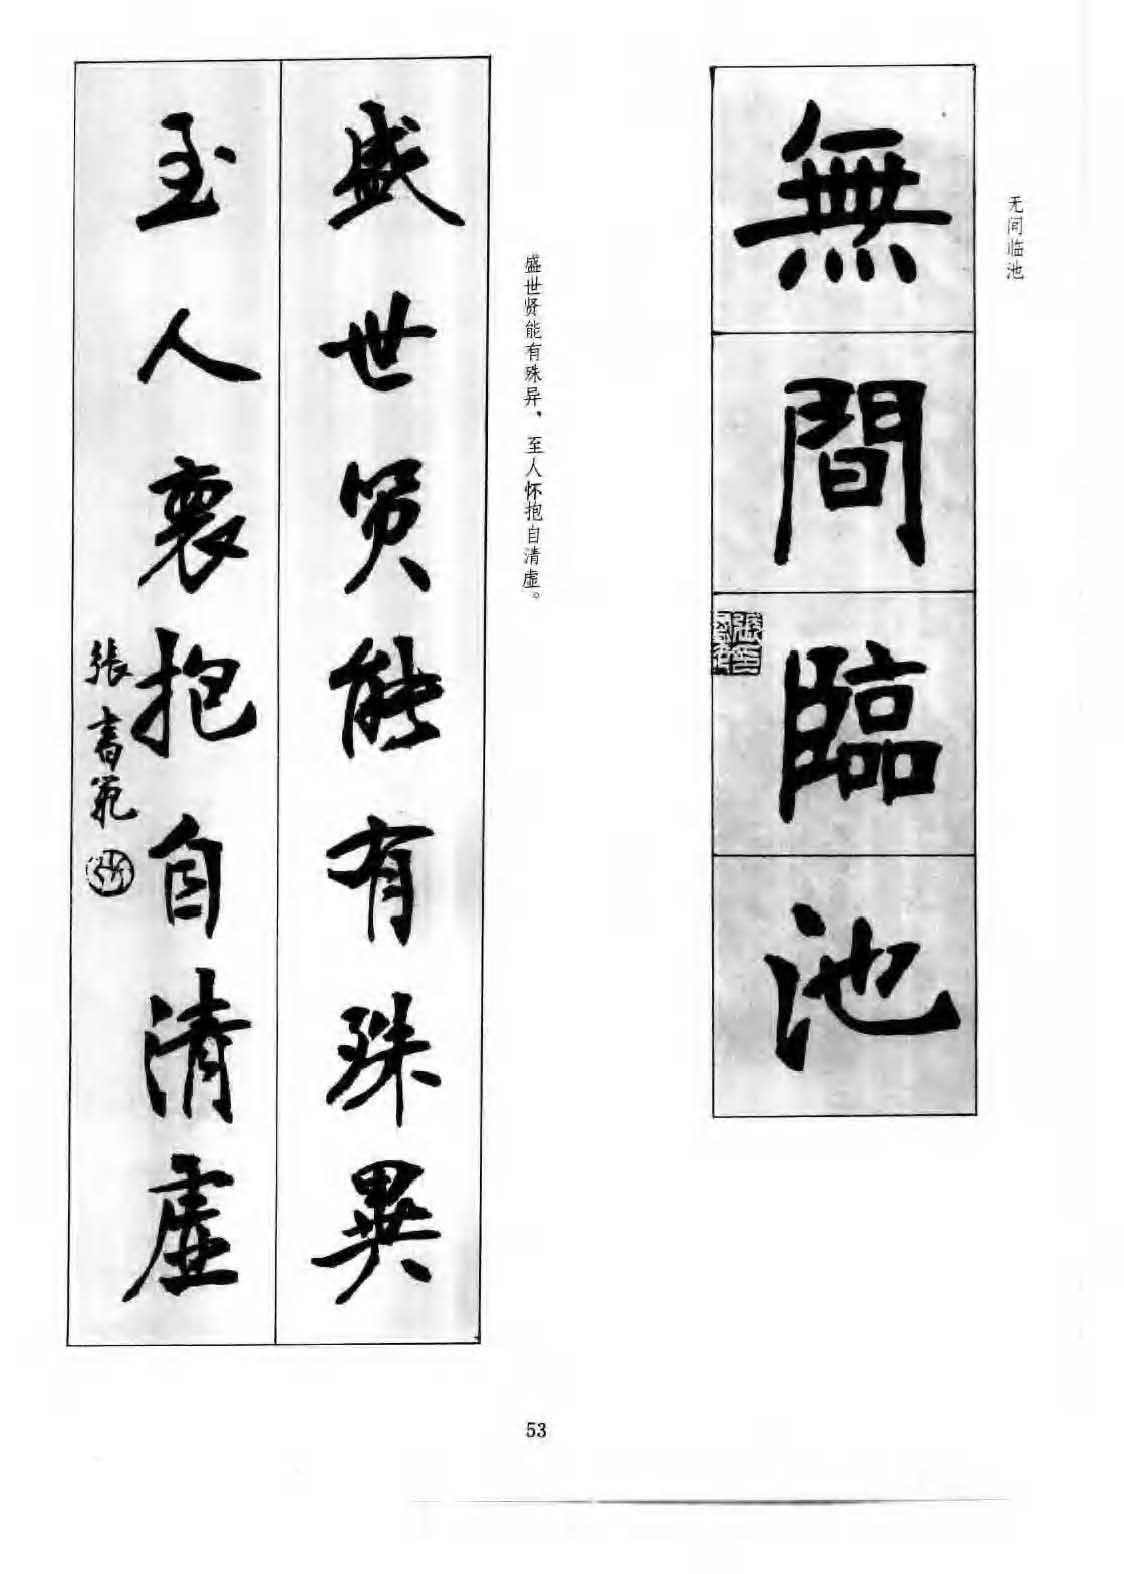 无间临池
無間臨池
盛世贤能有殊异、至人怀抱自清虚。
盛世贤能有殊異
至人褱抱自清虛
張書範
53